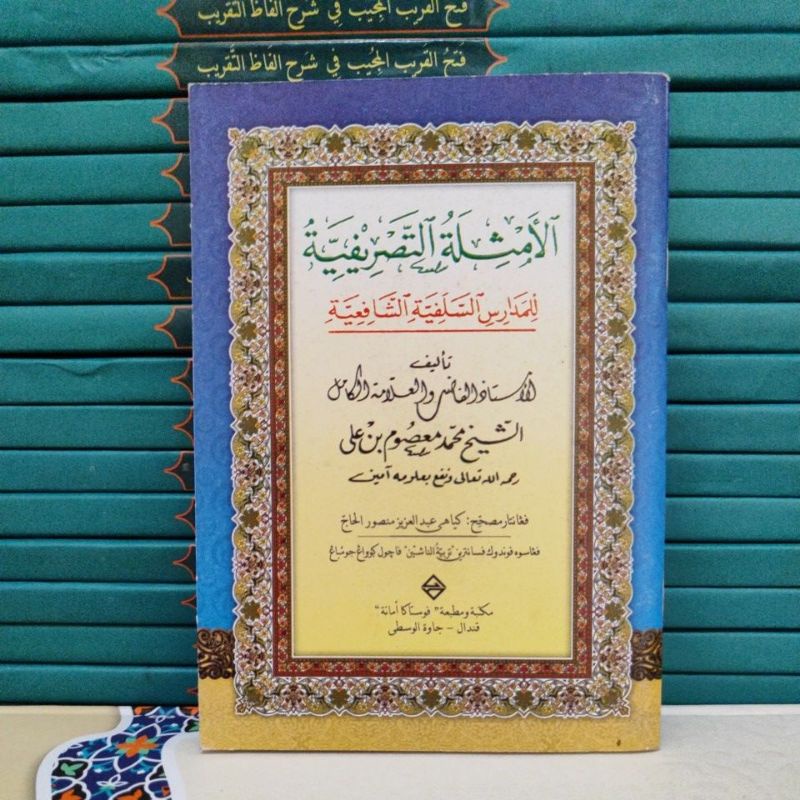 فتح القريب المجيب في شرح ألفاظ التقريب
فَتْحُ القَرِيبِ المُجِيبِ فِي شَرْحِ أَلفَاظِ التَّقرِيبِ
الأَمْثِلَةُ التَّصْرِيفِيَّةُ
لِلْمَدَارِسِ السَّلَفِيَّةِ الشَّافِعِيَّةِ
تأليف
الأستاذ الفاضل والعلامة الكامل
الشيخ محمد معصوم بن على
رحمه الله تعالى ونفع بعلومه آمين
فڠانتار مصحح: كياهي عبد العزيز منصور الحاج
فڠاسوه فوندوك فسانترين "تربية الناشئين" فاچول ڮوواڠ جومباڠ
مكتبة ومطبعة "فوستاكا أمانة"
قندال - جاوة الوسطى